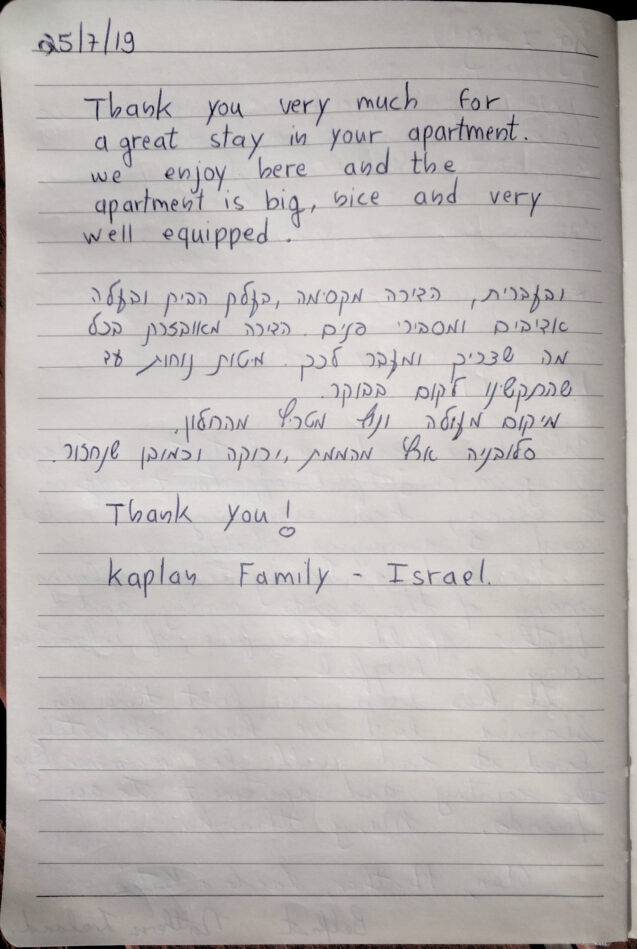 25/7/19
Thank you very much for
a great stay in your apartment.
we enjoy here and the
apartment is big, nice and very
well equipped.
ובעברית, הדירה מקסימה, בעלת הבית ובעלה
אדיבים ומסבירי פנים. הדירה מאובזרת בכל
מה שצריך ומעבר לכך. מיטות נוחות עד
שהתקשינו לקום בבוקר.
מיקום מעולה ונוף מטריף מהחלון.
סלובניה ארץ מהממת, ירוקה וכמובן שנחזור.
Thank you!
Kaplan Family - Israel.